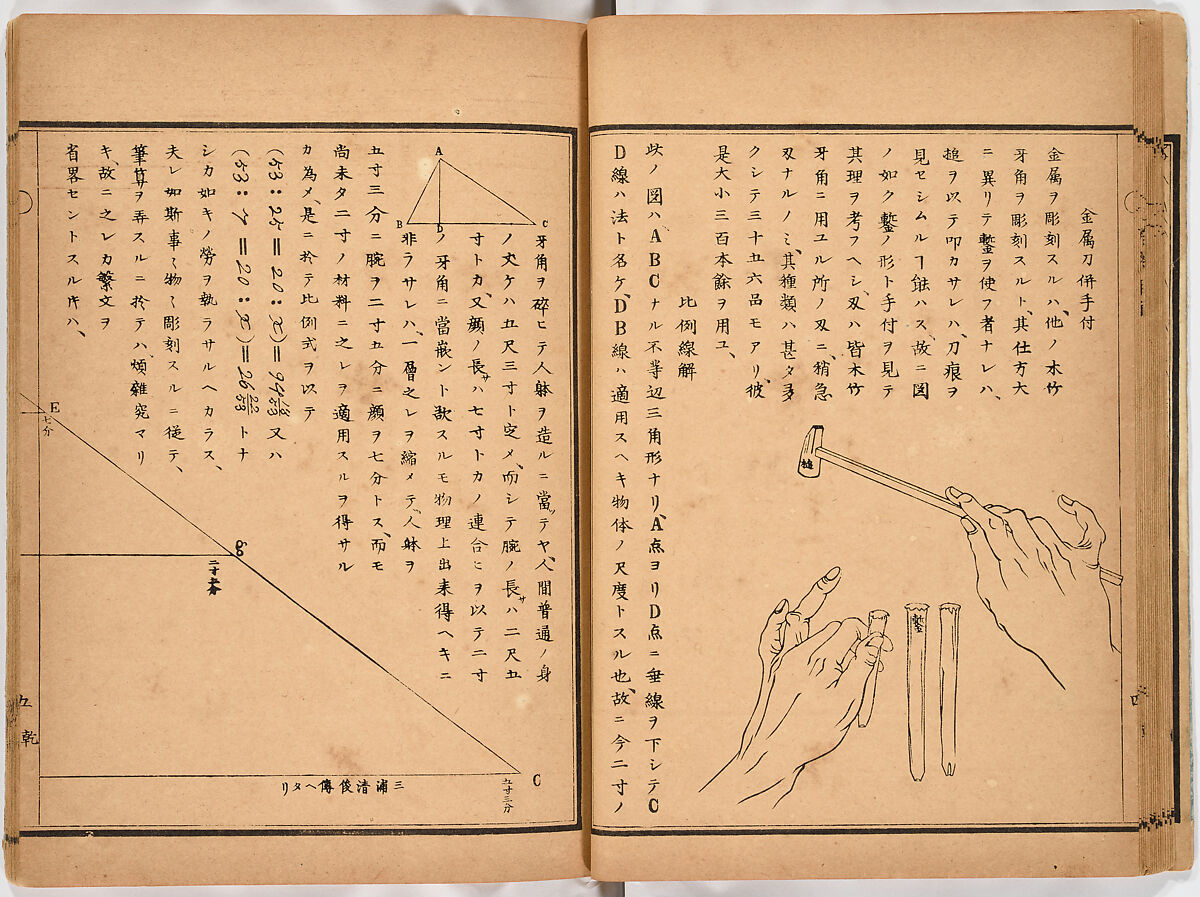 金属刀併手付
金属ヲ彫刻スルハ、他ノ木竹
牙角ヲ彫刻スルト、其仕方大
ニ異リテ鏨ヲ使フ者ナレハ、
槌ヲ以テ叩カサレハ、刀痕ヲ
見セシムルヿ能ハス、故ニ図
ノ如ク鏨ノ形ト手付ヲ見テ
其理ヲ考フヘシ、刄ハ皆木竹
牙角ニ用ユル所ノ刄ニ、稍急
刄ナルノミ、其種類ハ甚タ多
クシテ三十五六品モアリ、彼
是大小三百本餘ヲ用ユ、
槌
鏨
比例線解
此ノ図ハ、ABCナル不等辺三角形ナリ、A点ヨリD点ニ垂線ヲ下シテC
D線ハ法ト名ケ、DB線ハ適用スヘキ物体ノ尺度トスル也、故ニ今二寸ノ
四
牙角ヲ碎ヒテ人躰ヲ造ルニ當ッテヤ、人間普通ノ身
ノ丈ケハ五尺三寸ト定メ、而シテ腕ノ長サハ二尺五
寸トカ、又顔ノ長サハ七寸トカノ連合ヒヲ以テ二寸
ノ牙角ニ當嵌ント欲スルモ物理上出来得ヘキニ
非ラサレハ、一層之レヲ縮メテ、人躰ヲ
五寸三分ニ腕ヲ二寸五分ニ顔ヲ七分トス、而モ
尚未タ二寸ノ材料ニ之レヲ適用スルヲ得サル
カ為メ、是ニ於テ比例式ヲ以テ
(53:25=20:x)=9 4 23/53 又ハ
(53:7=20:x)=26 22/53 トナ
シカ如キノ勞ヲ執ラサルヘカラス、
夫レ如斯事々物々彫刻スルニ従テ、
筆算ヲ弄スルニ於テハ、煩雜究マリ
キ、故ニ之レカ繁文ヲ
省畧セントスルキハ、
A
B
D
C
E
七分
二寸五分
C
五寸三分
三浦清俊傳ヘタリ
五
乾